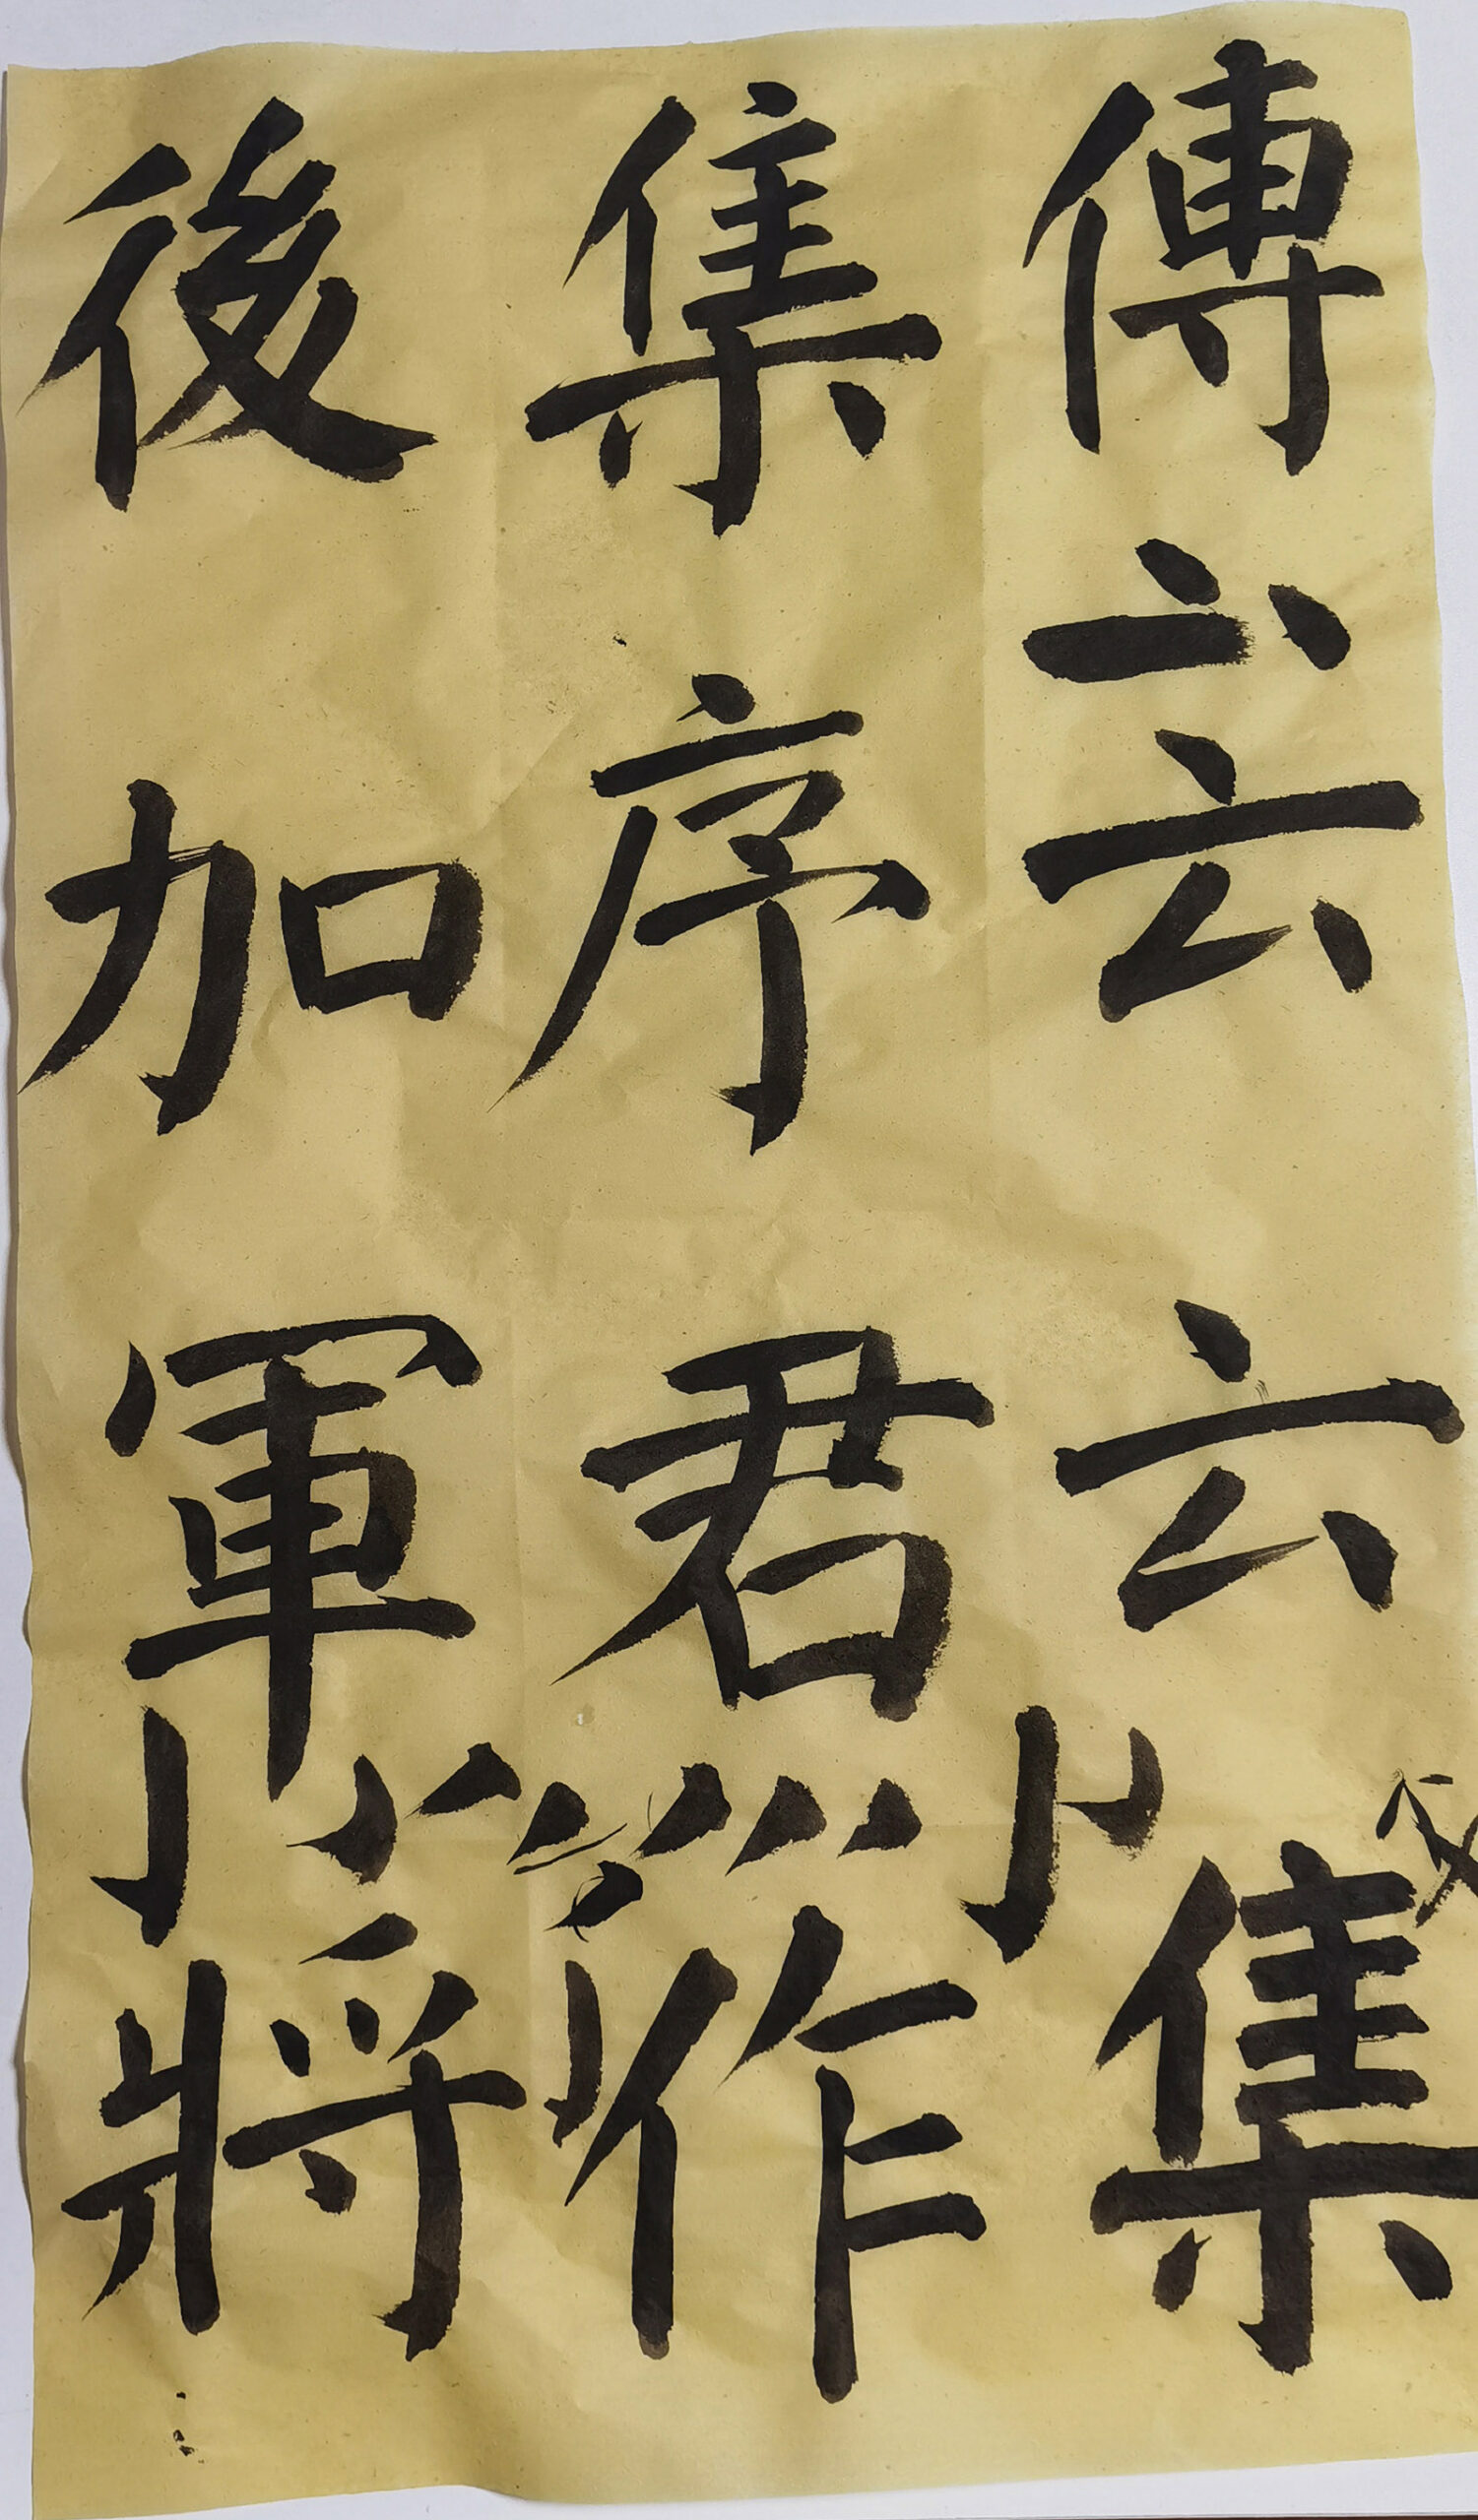 傅云云集
集序君作
後加軍將